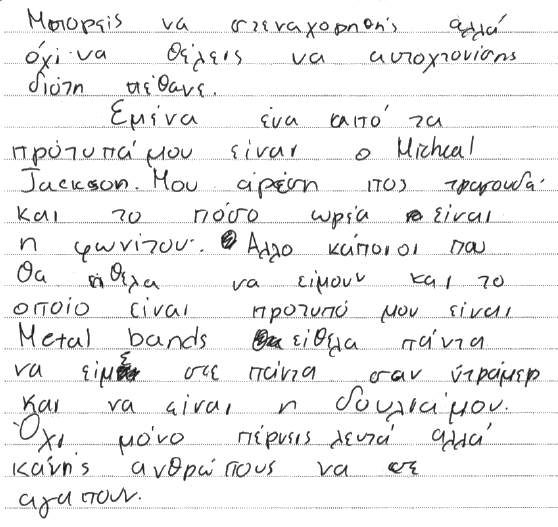 Μπορείς να στεναχορηθής αλλά
όχι να θέλεις να αυτοχτονίσης
διότη πέθανε.
Εμένα ένα απτό τα
πρότυπά μου είναι ο Micheal
Jackson. Μου αρέση πος τραγουδά
και το πόσο ωρέα είναι
η φωνίτου. Αλλο κάποιοι που
θα ήθελα να είμουν και το
οποίο είναι προτυπό μου είναι
Metal bands είθελα πάντα
να είμε σε πάντα σαν ντράμερ
και να είναι η δουλιά μου.
Όχι μόνο πέρνεις λευτά αλλά
κάνης ανθρώπους να σε
αγαπουν.